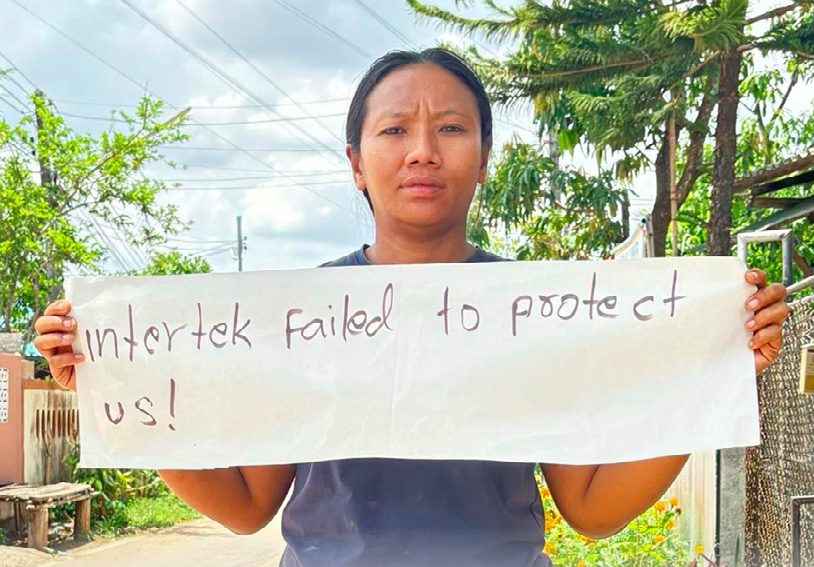 intertek Failed to protect
us!